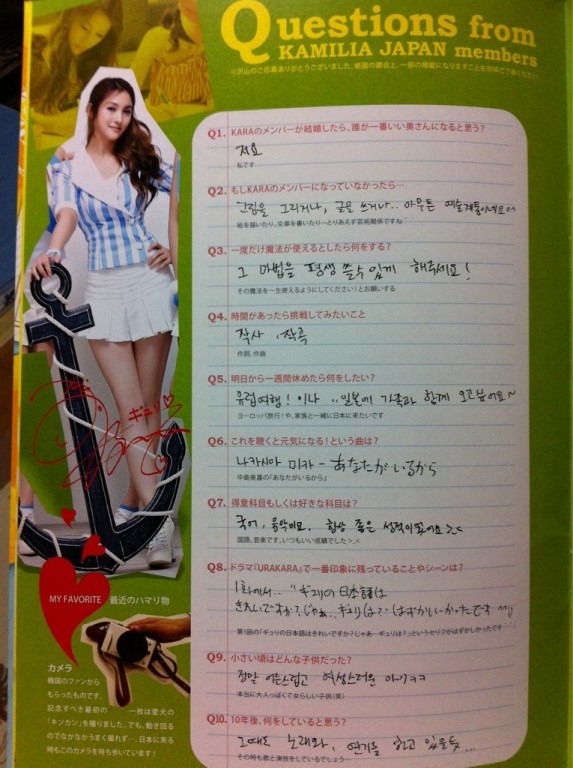 Questions from
KAMILIA JAPAN members
Q1. KARAのメンバーが結婚したら、誰が一番いい奥さんになると思う?
저요
私です
Q2. もしKARAのメンバーになっていなかったら…
그림을 그리거나, 글을 쓰거나.. 아무튼 예술계통이네요^^
絵を描いたり、文章を書いたり…とりあえず芸術関係ですね
Q3. 一度だけ魔法が使えるとしたら何をする?
그 마법을 평생 쓸수 있게 해주세요!
その魔法を一生使えるようにしてください!とお願いする
Q4. 時間があったら挑戦してみたいこと
작사, 작곡
作詞、作曲
Q5. 明日から一週間休めたら何をしたい?
유럽여행! 이나 .. 일본에 가족과 함께 오고싶어요~
ヨーロッパ旅行!や、家族と一緒に日本に来たいです
Q6. これを聴くと元気になる!という曲は?
나카시아 미카 - あなたがいるから
中島美嘉の「あなたがいるから」
Q7. 得意科目もしくは好きな科目は?
국어, 음악이요, 항상 좋은 성적이였어요>_<
国語、音楽です。いつもいい成績でした>_<
Q8. ドラマ『URAKARA』で一番印象に残っていることやシーンは?
1화에서.. "ギュリの日本語は
きれいですか?じゃあ..ギュリは?" はずかしいかったです
第1話の「ギュリの日本語はきれいですか?じゃあ…ギュリは?」というセリフがはずかしかったです
Q9. 小さい頃はどんな子供だった?
정말 어른스럽고 여성스러운 아이ㅋㅋ
本当に大人っぽくて女らしい子供(笑)
Q10. 10年後、何をしていると思う?
그때도 노래와, 연기를 하고 있을듯...
その時も歌と演技をしているでしょう…
ギュリ
MY FAVORITE 最近のハマリ物
カメラ
韓国のファンから
もらったものです。
記念すべき最初の 一枚は愛犬の
「キンカン」を撮りました。でも、動き回る
のでなかなかうまく撮れず…。日本に来る
時もこのカメラを持ち歩いています!